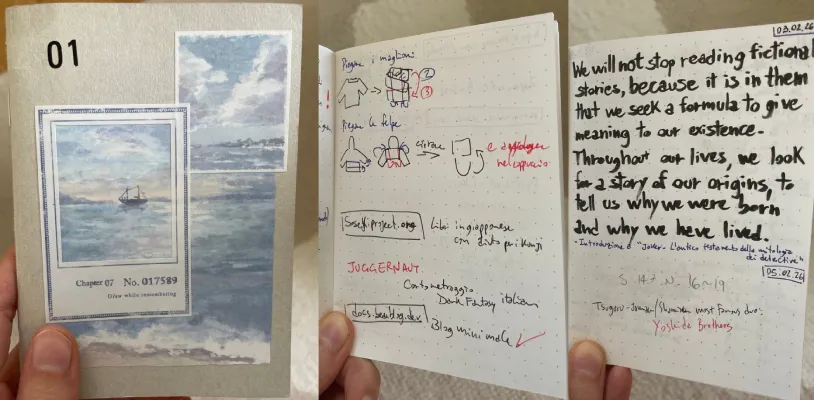 01
Chapter 07 No. 017589
Draw while remembering
Piegare i maglioni
2
3
Piegare le felpe
girare
e
nel cappuccio
Libri in giapponese
con aiuto per i kanji
JUGGERNAUT.
Cortometraggio
Dark Fantasy italiano
docs.bearblog.dev
Blog minimale
03.02.26
We will not stop reading fictional
stories, because it is in them
that we seek a formula to give
meaning to our existence.
Throughout our lives, we look
for a story of our origins, to
tell us why we were born
and why we have lived.
- Introduzione a "Joker - L'antico testamento della mitologia
dei detective"
05.02.26
most famous duo:
Yoshida Brothers